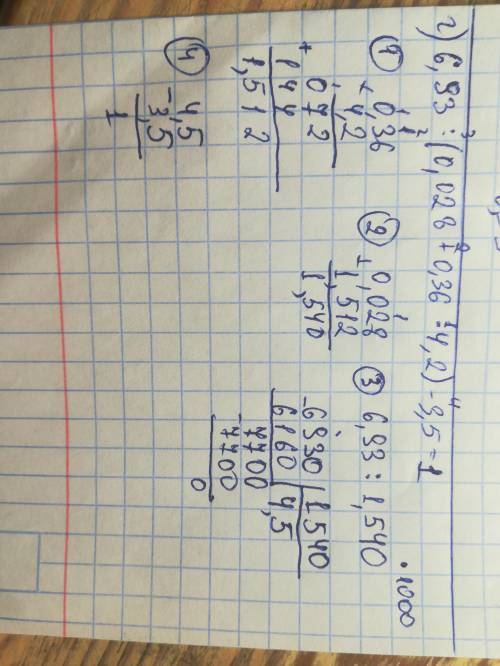 г) 6,93 : (0,028 + 0,36 · 4,2) - 3,5 = 1
3 2 1 4
① × 0,36
4,2
+ 072
144
1,512
② + 0,028
1,512
1,540
③ 6,93 : 1,540 ·1000
- 6930 | 1540
6160 | 4,5
- 7700
7700
0
④ - 4,5
3,5
1